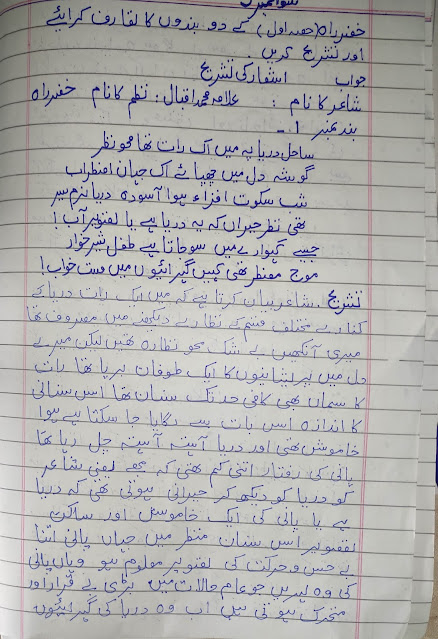 سوال نمبر
خضر راہ (حصہ اول) کے دو بندوں کا تعارف کرائیے
اور تشریح کریں۔
جواب اشعار کی تشریح
شاعر کا نام : علامہ محمد اقبال : نظم کا نام خضر راہ
بند نمبر 1 ۔۔
ساحل دریا پہ میں اک رات تھا محو نظر
گوشہ دل میں چھپائے اک جہان اضطراب
شب سکوت افزاء ہوا آسودہ دریا نرم سیر
تھی نظر حیراں کہ یہ دریا ہے یا تصویر آب !
جیسے گہوارے میں سو جاتا ہے طفل شیر خوار
موج مضطر تھی کہیں گہرائیوں میں مست خواب !
تشریح ۔ شاعر بیان کرتا ہے کہ میں ایک رات دریا کے
کنارے مختلف قسم کے نظارے دیکھنے میں مصروف تھا
میری آنکھیں بے شک محو نظارہ تھیں لیکن میرے
دل میں پریشانیوں کا ایک طوفان برپا تھا رات
کا سماں بھی کافی حد تک سنسان تھا اس سنسانی
کا اندازہ اس بات سے لگایا جا سکتا ہے ہوا
خاموش تھی اور دریا آہستہ آہستہ چل رہا تھا
پانی کی رفتار اتنی کم تھی کہ مجھے یعنی شاعر
کو دریا کو دیکھ کر حیرانی ہوتی تھی کہ دریا
ہے یا پانی کی ایک خاموش اور ساکت
تصویر اس سنسان منظر میں جہاں پانی اتنا
بے حس و حرکت کی تصویر معلوم ہو وہاں پانی
کی وہ لہریں جو عام حالات میں بڑی بے قرار اور
متحرک ہوتی ہیں اب وہ دریا کی گہرائیوں